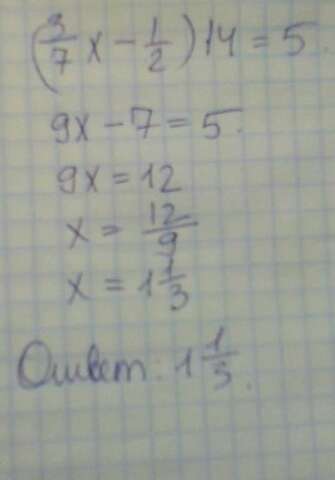 (3/7 x - 1/2) 14 = 5
9x - 7 = 5.
9x = 12
x = 12/9
x = 1 1/3
Ответ: 1 1/3.